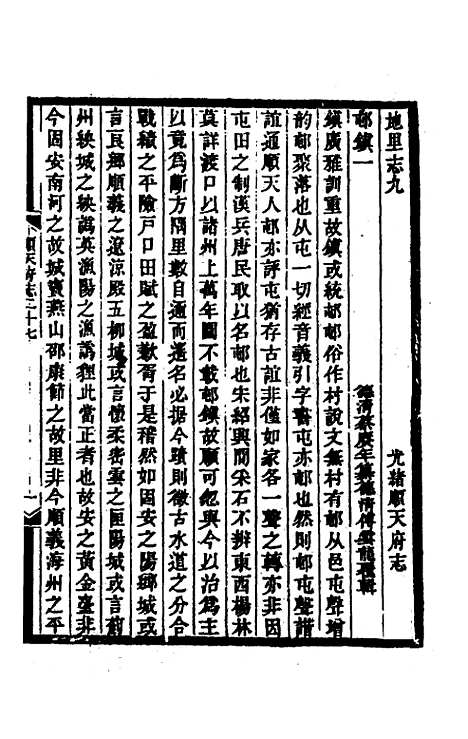 地里志九　　　　　　　　　　光緒順天府志
邨鎮一　　　　　德清蔡賡年纂德清傅雲龍覆輯
鎮廣雅訓重故鎮或統邨邨俗作村說文無村有邨从邑屯聲增
韵邨聚落也从屯一切經音義引字書屯亦邨也然則邨屯聲諧
誼通順天人邨亦評屯猶存古誼非僅如家各一聲之轉亦非因
屯田之制漢兵唐民取以名邨也朱紹興閒采石不辦東西楊林
莫詳渡口以諸州上萬年圖不載邨鎮故顧可忽與今以治爲主
以竟爲斷方隅里數自邇而遙名必据今蹟則徵古水道之分合
戰績之平險戸口田賦之盈歉胥于是稽然如固安之陽鄉城或
言良鄉順義之遼涼殿五柳城或言懷柔密雲之匣陽城或言薊
州紻城之紻譌英漁陽之漁譌貍此當正者也故安之黃金臺非
今固安南河之故城寶燕山邵康節之故里非今順義海州之平
順天府志二十七